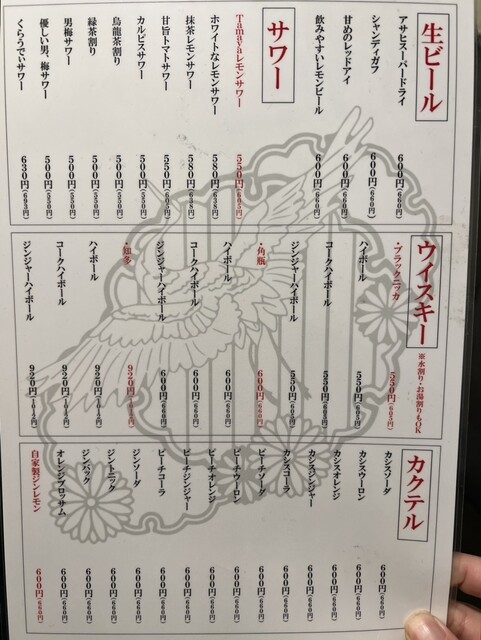 生ビール
アサヒスーパードライ 600円(660円)
シャンディガフ 600円(660円)
甘めのレッドアイ 600円(660円)
飲みやすいレモンビール 600円(660円)
サワー
Tamayaレモンサワー 550円(605円)
ホワイトなレモンサワー 580円(638円)
抹茶レモンサワー 580円(638円)
甘旨トマトサワー 550円(605円)
カルピスサワー 500円(550円)
烏龍茶割り 500円(550円)
緑茶割り 500円(550円)
男梅サワー 500円(550円)
優しい男、梅サワー 500円(550円)
くらうでぃサワー 630円(693円)
ウイスキー
※水割り・お湯割りもOK
・ブラックニッカ 550円(605円)
ハイボール 550円(605円)
コークハイボール 550円(605円)
ジンジャーハイボール 550円(605円)
・角瓶 600円(660円)
ハイボール 600円(660円)
コークハイボール 600円(660円)
ジンジャーハイボール 600円(660円)
・知多 920円(1012円)
ハイボール 920円(1012円)
コークハイボール 920円(1012円)
ジンジャーハイボール 920円(1012円)
カクテル
カシスソーダ 600円(660円)
カシスウーロン 600円(660円)
カシスオレンジ 600円(660円)
カシスジンジャー 600円(660円)
カシスコーラ 600円(660円)
ピーチソーダ 600円(660円)
ピーチウーロン 600円(660円)
ピーチオレンジ 600円(660円)
ピーチジンジャー 600円(660円)
ピーチコーラ 600円(660円)
ジンソーダ 600円(660円)
ジントニック 600円(660円)
ジンバック 600円(660円)
オレンジブロッサム 600円(660円)
自家製ジンレモン 600円(660円)